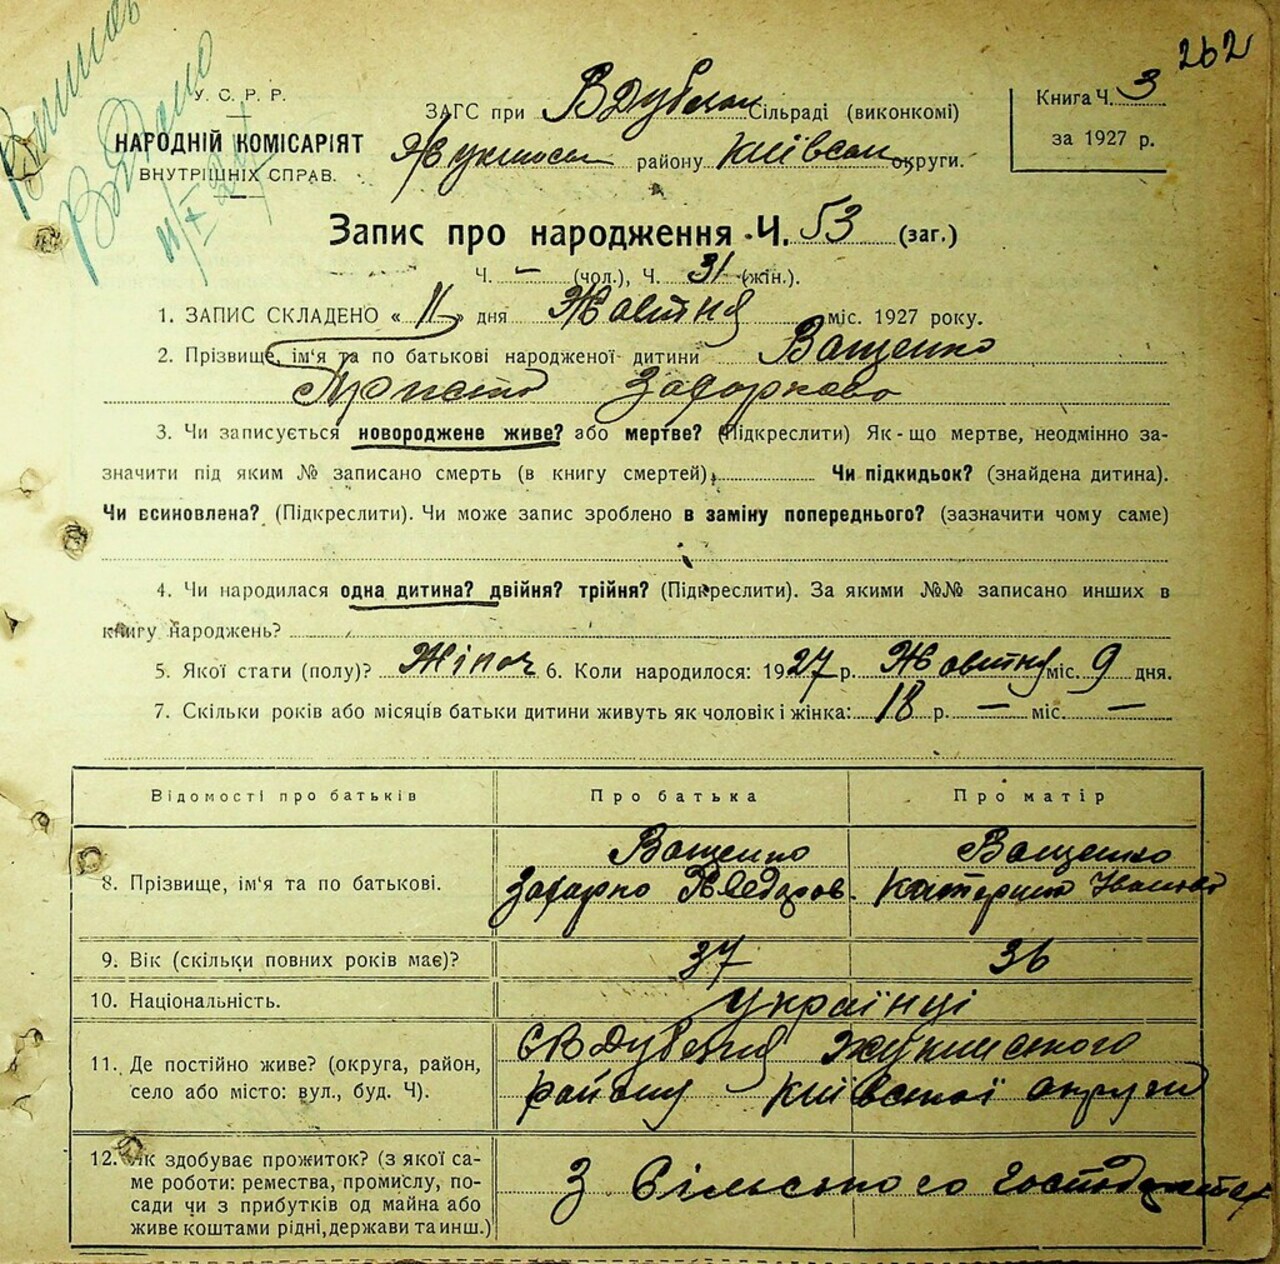 262
У. С. Р. Р.
НАРОДНІЙ КОМІСАРІЯТ
ВНУТРІШНІХ СПРАВ.
ЗАГС при В Дубечан Сільраді (виконкомі)
району Київськ округи.
Книга Ч. 3
за 1927 р.
Запис про народження Ч. 53 (заг.)
Ч. – (чол.), Ч. 31 (жін.).
1. ЗАПИС СКЛАДЕНО « 11 » дня Жовтня міс. 1927 року.
2. Прізвище, ім'я та по батькові народженої дитини Ващенко
Захарково
3. Чи записується новороджене живе? або мертве? (Підкреслити) Як-що мертве, неодмінно за-
значити під яким № записано смерть (в книгу смертей), Чи підкидьок? (знайдена дитина).
Чи всиновлена? (Підкреслити). Чи може запис зроблено в заміну попереднього? (зазначити чому саме)
4. Чи народилася одна дитина? двійня? трійня? (Підкреслити). За якими №№ записано инших в
книгу народжень?
5. Якої стати (полу)? Жіноч 6. Коли народилося: 1927 р. Жовтня міс. 9 дня.
7. Скільки років або місяців батьки дитини живуть як чоловік і жінка: 18 р. – міс. –
Відомості про батьків Про батька Про матір
8. Прізвище, ім'я та по батькові.
Ващенко Ващенко
Захарко Хведоров. Катерина Іванова
9. Вік (скільки повних років має)? 37 36
10. Національність. Українці
11. Де постійно живе? (округа, район,
село або місто: вул., буд. Ч).
С В Дубечня Жукинського
району Київської округи
12. Як здобуває прожиток? (з якої са-
ме роботи: ремества, промислу, по-
сади чи з прибутків од майна або
живе коштами рідні, держави та инш.)
З Сільського господарства